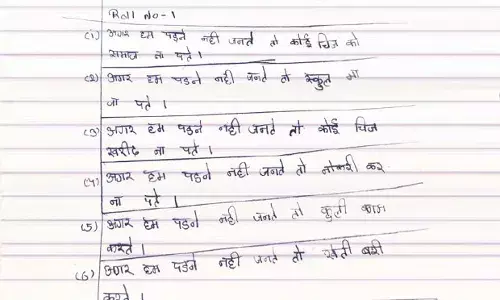 Roll No-1
(1) अगर हम पडने नही जनते तो कोई चिज को
समाज ना पते ।
(2) अगर हम पडने नही जनते तो स्कुल ना
जा पते ।
(3) अगर हम पडने नही जनते तो कोई चिज
खरीद ना पते ।
(4) अगर हम पडने नही जनते तो नोकरी कर
ना पते ।
(5) अगर हम पडने नही जनते तो कुली काम
करते ।
(6) अगर हम पडने नही जनते तो खेती बरी
करते ।